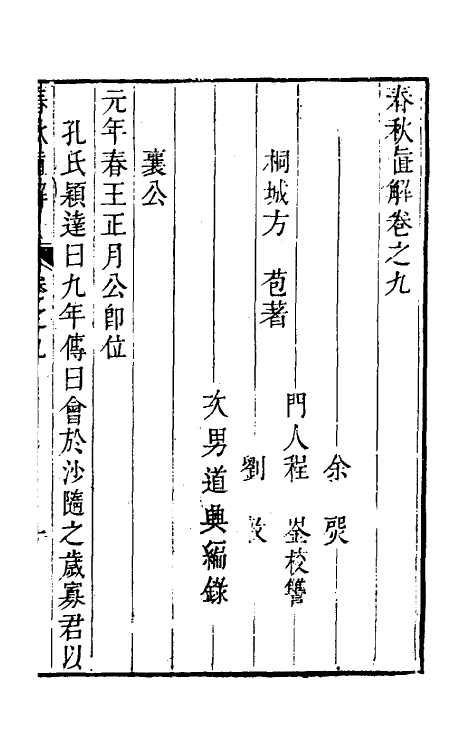 春秋直解卷之九
桐城方　苞著
余　煚
門人程　崟校讐
劉　敦
次男道興編錄
襄公
元年春王正月公卽位
孔氏穎達曰九年傳曰會於沙隨之歲寡君以
春秋直解　卷之九